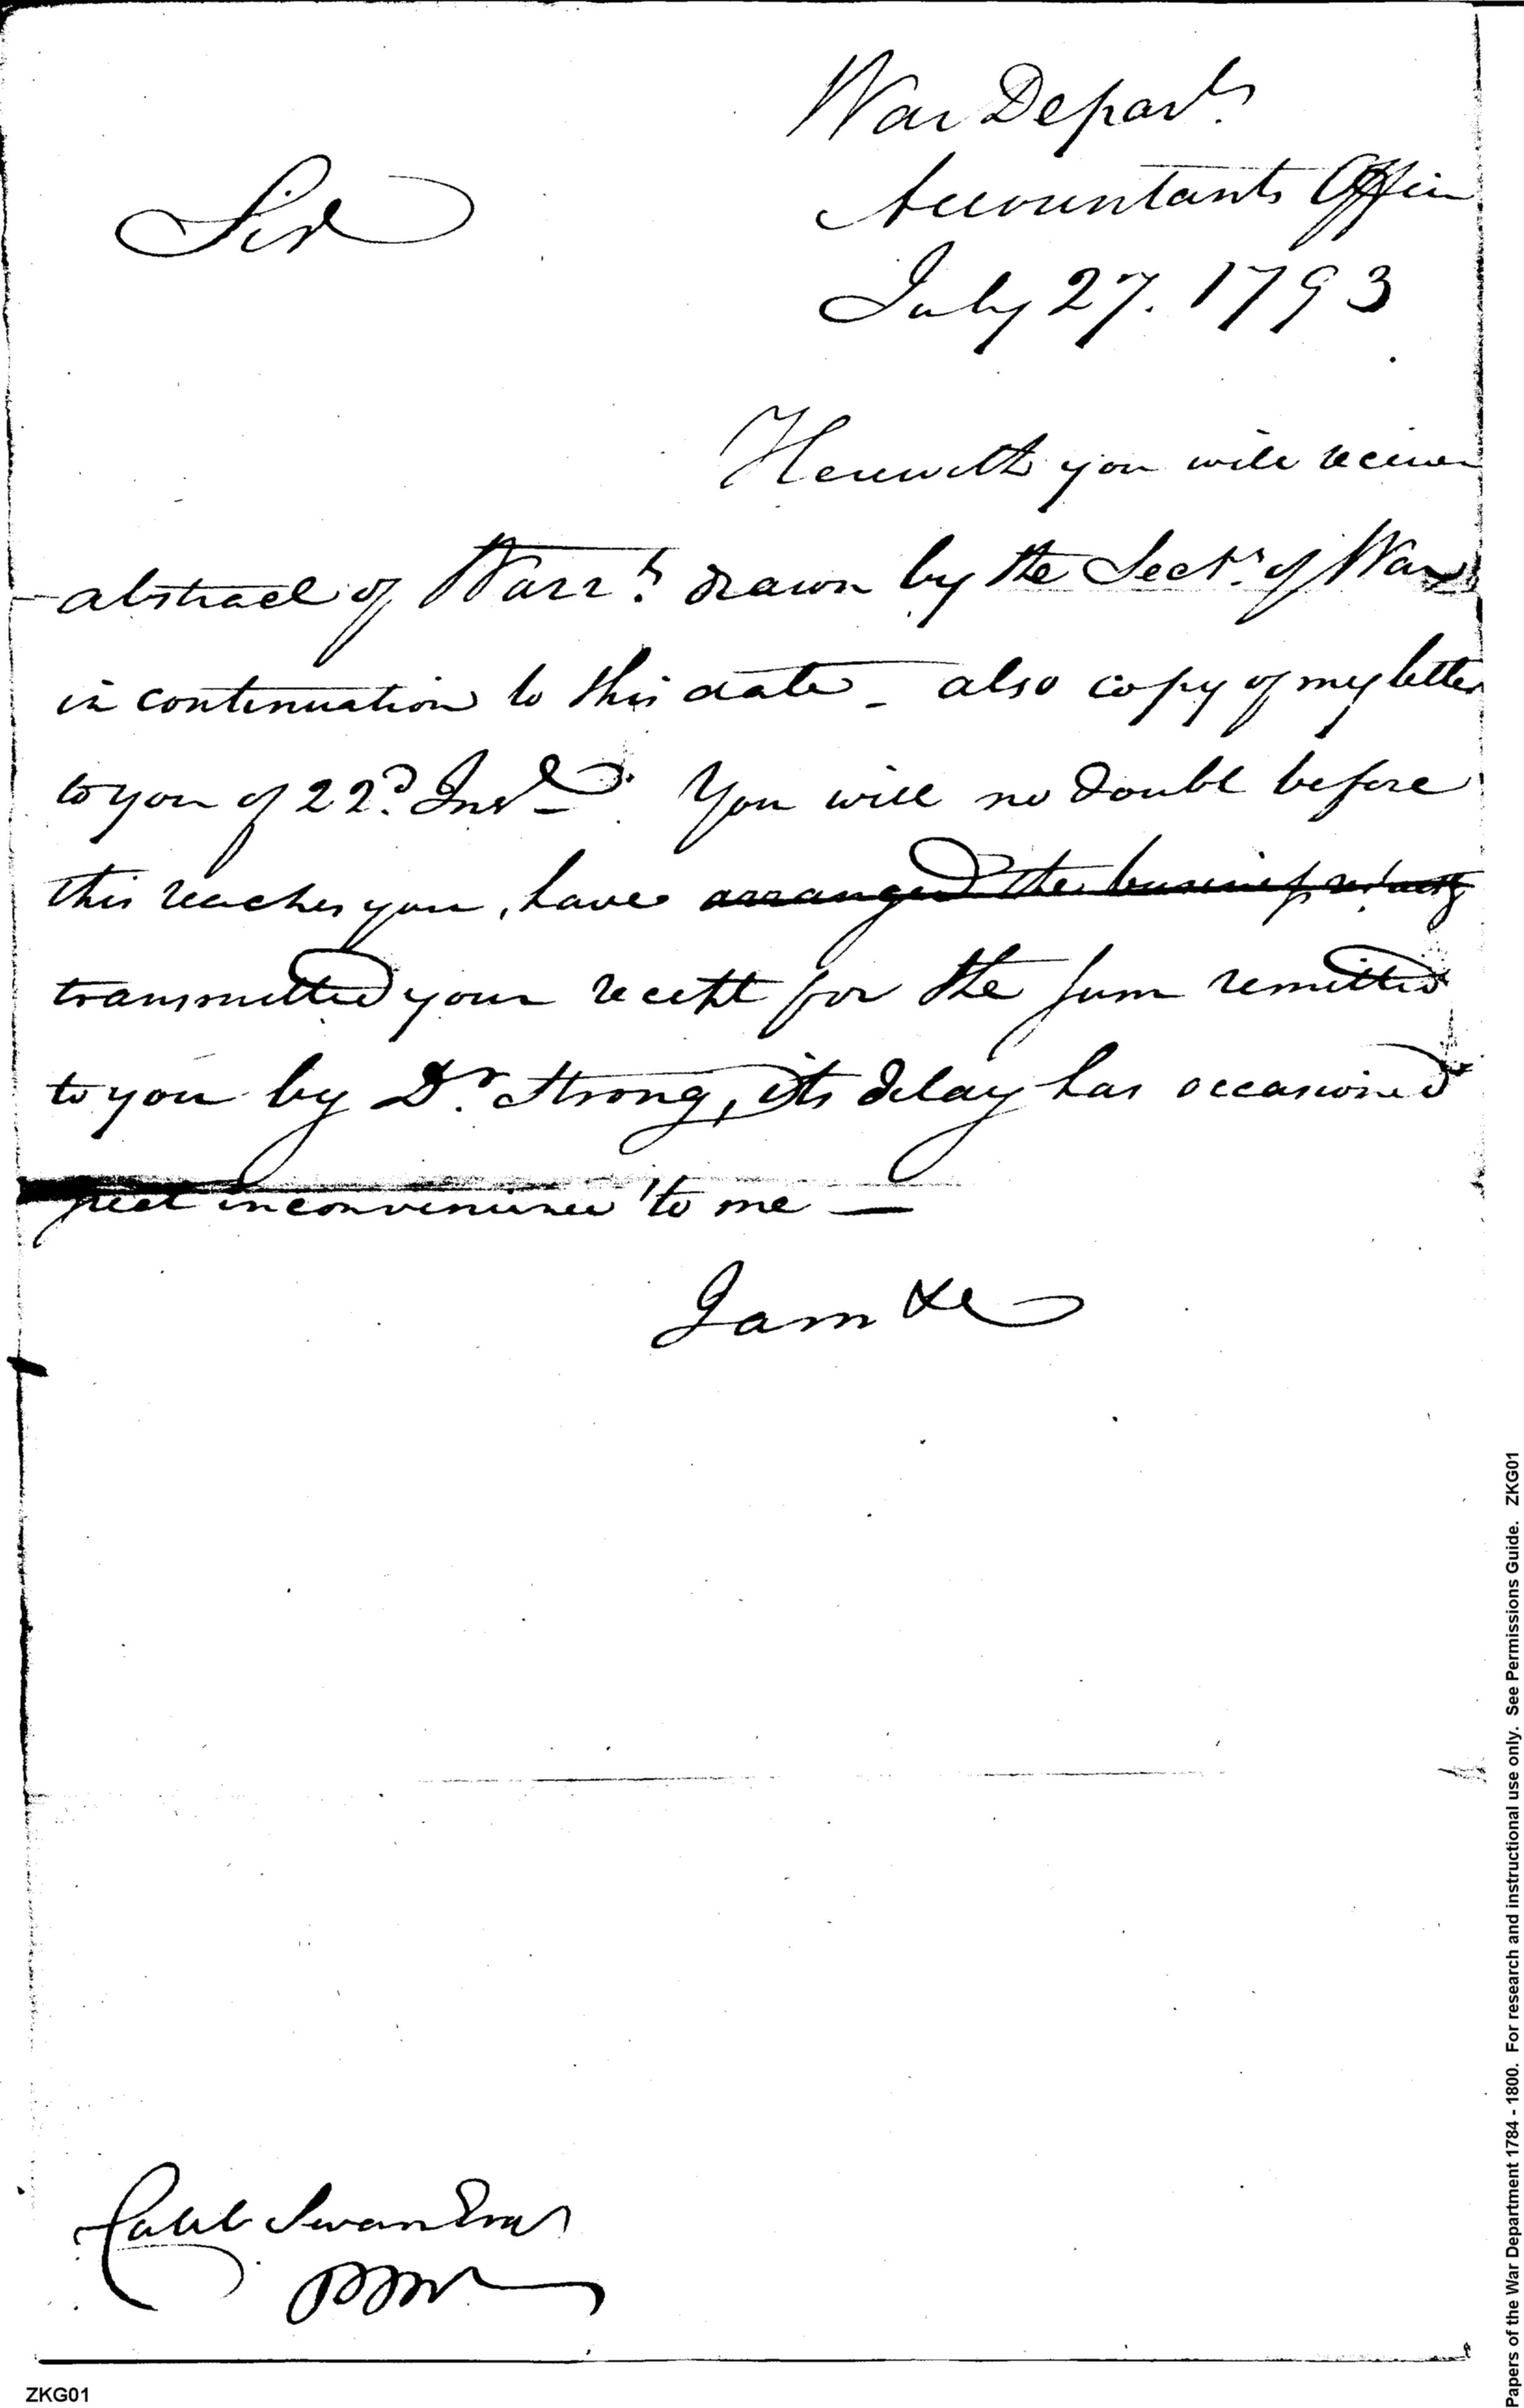 War Depart.
Accountants Office
July 27. 1793
Sir
Herewith you will receive
abstract of Warrts. drawn by the Secty. of War
in continuation to this date - also copy of my letter
to you of 22d. Inst. You will no doubt before
this reaches you, have arranged the business
transmitted your receipt for the sum remitted
to you by Dr. Strong, its delay has occasioned
great inconvenience to me —
I am &c
Caleb Swan Esqr
PMr
ZKG01
Papers of the War Department 1784 - 1800. For research and instructional use only. See Permissions Guide. ZKG01